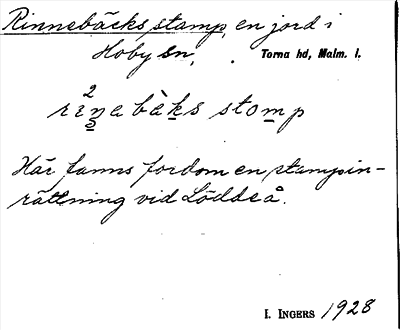 Rinnebäcks stamp, en jord i
Hoby sn, . Torna hd, Malm. l.
2
rinabàks stomp
Här fanns fordom en stampin-
rättning vid Löddeå.
I. INGERS 1928